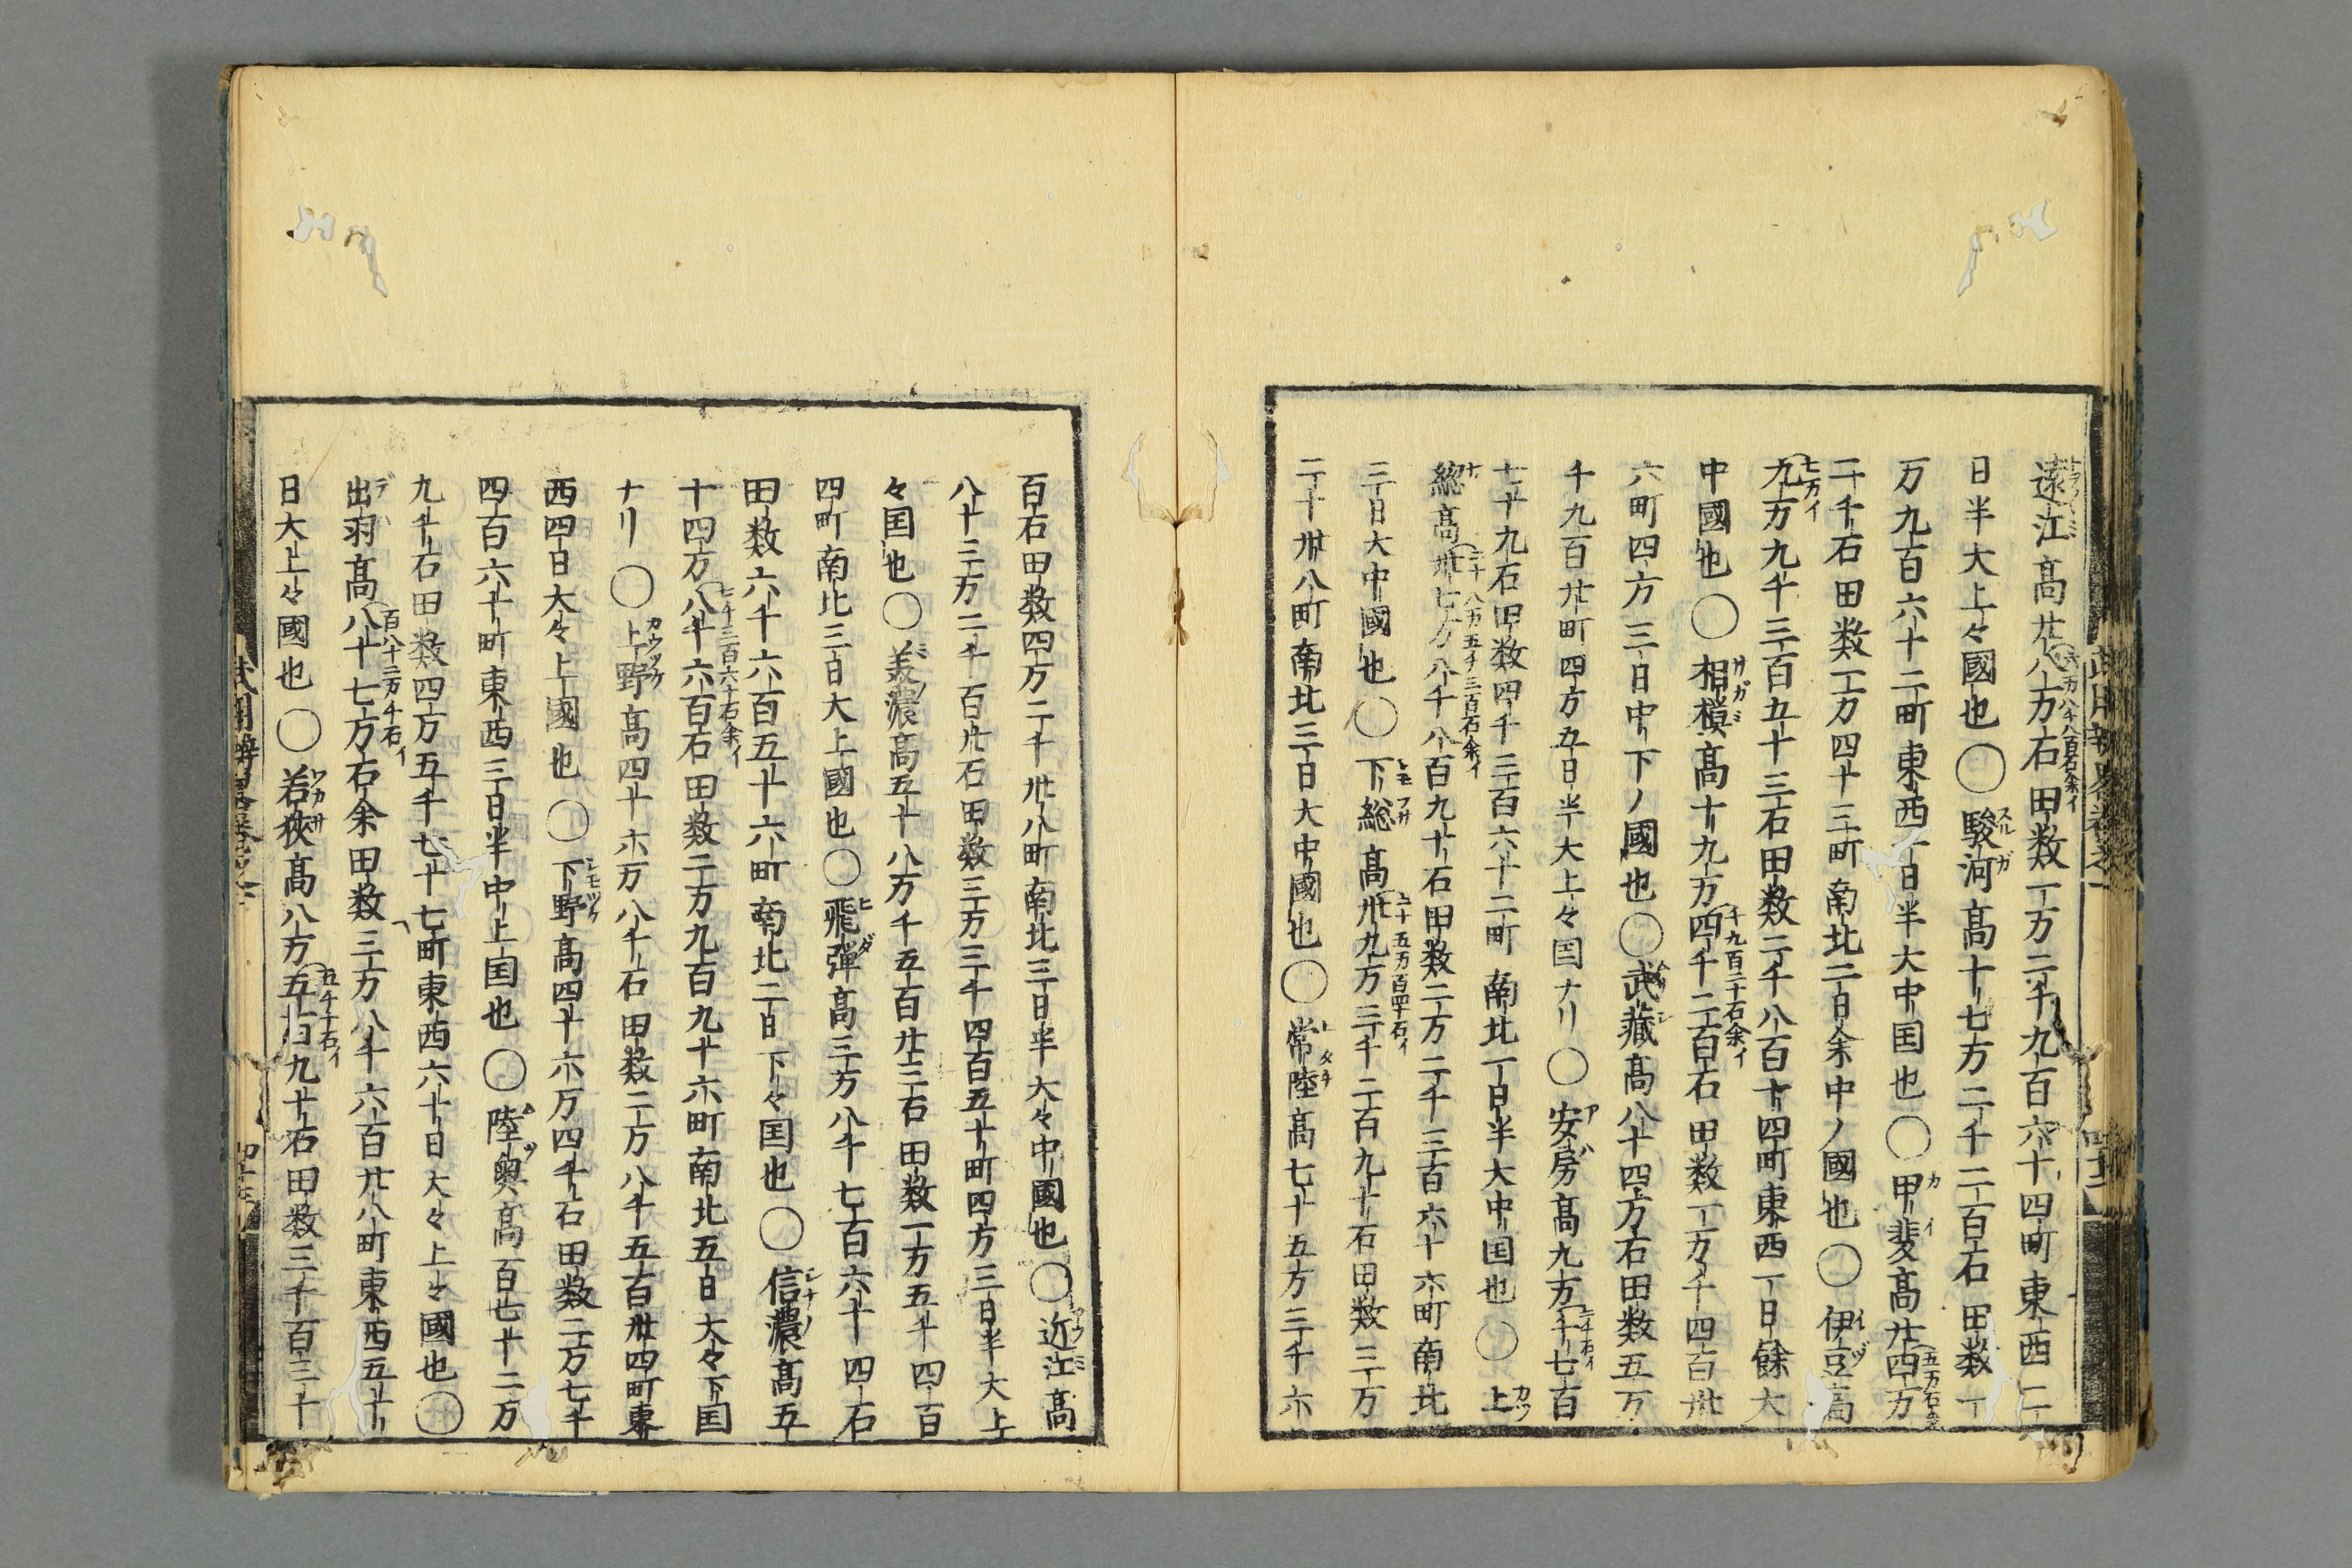 遠江高廿八万石田数一万二千九百六十四町東西二
日半大上々國也〇駿河高十七万二千二百石田数一
万九百六十二町東西一日半大中国也〇甲斐高廿四万
二千石田数一万四十三町南北二日余中ノ國也〇伊豆高
九万九千三百五十三石田数二千八百十四町東西一日餘大
中國也〇相模高十九万四千二百石田数一万千四百卅
六町四方三日中下ノ國也〇武藏高八十四万石田数五万
千九百廿町四方五日半大上々国ナリ〇安房高九万千七百
七十九石田数四千三百六十二町南北一日半大中国也〇上
総高卅七万八千八百九十石田数二万二千三百六十六町南北
三日大中國也〇下総高卅九万三千二百九十石田数三万
二千卅八町南北三日大中國也〇常陸高七十五万三千六
百石田数四万二千卅八町南北三日半大々中國也〇近江高
八十三万二千百廿石田数三万三千四百五十町四方三日半大上
々国也〇美濃高五十八万千五百廿三石田数一万五千四百
四町南北三日大上國也〇飛彈高三万八千七百六十四石
田数六千六百五十六町南北二日下々国也〇信濃高五
十四万八千六百石田数二万九百九十六町南北五日大々下国
ナリ〇上野高四十六万八千石田数二万八千五百卅四町東
西四日大々上國也〇下野高四十六万四千石田数二万七千
四百六十町東西三日半中上国也〇陸奥高百七十二万
九千石田数四万五千七十七町東西六十日大々上々國也〇
出羽高八十七万石余田数三万八千六百廿八町東西五十
日大上々國也〇若狹高八万五百九十石田数三千百三十